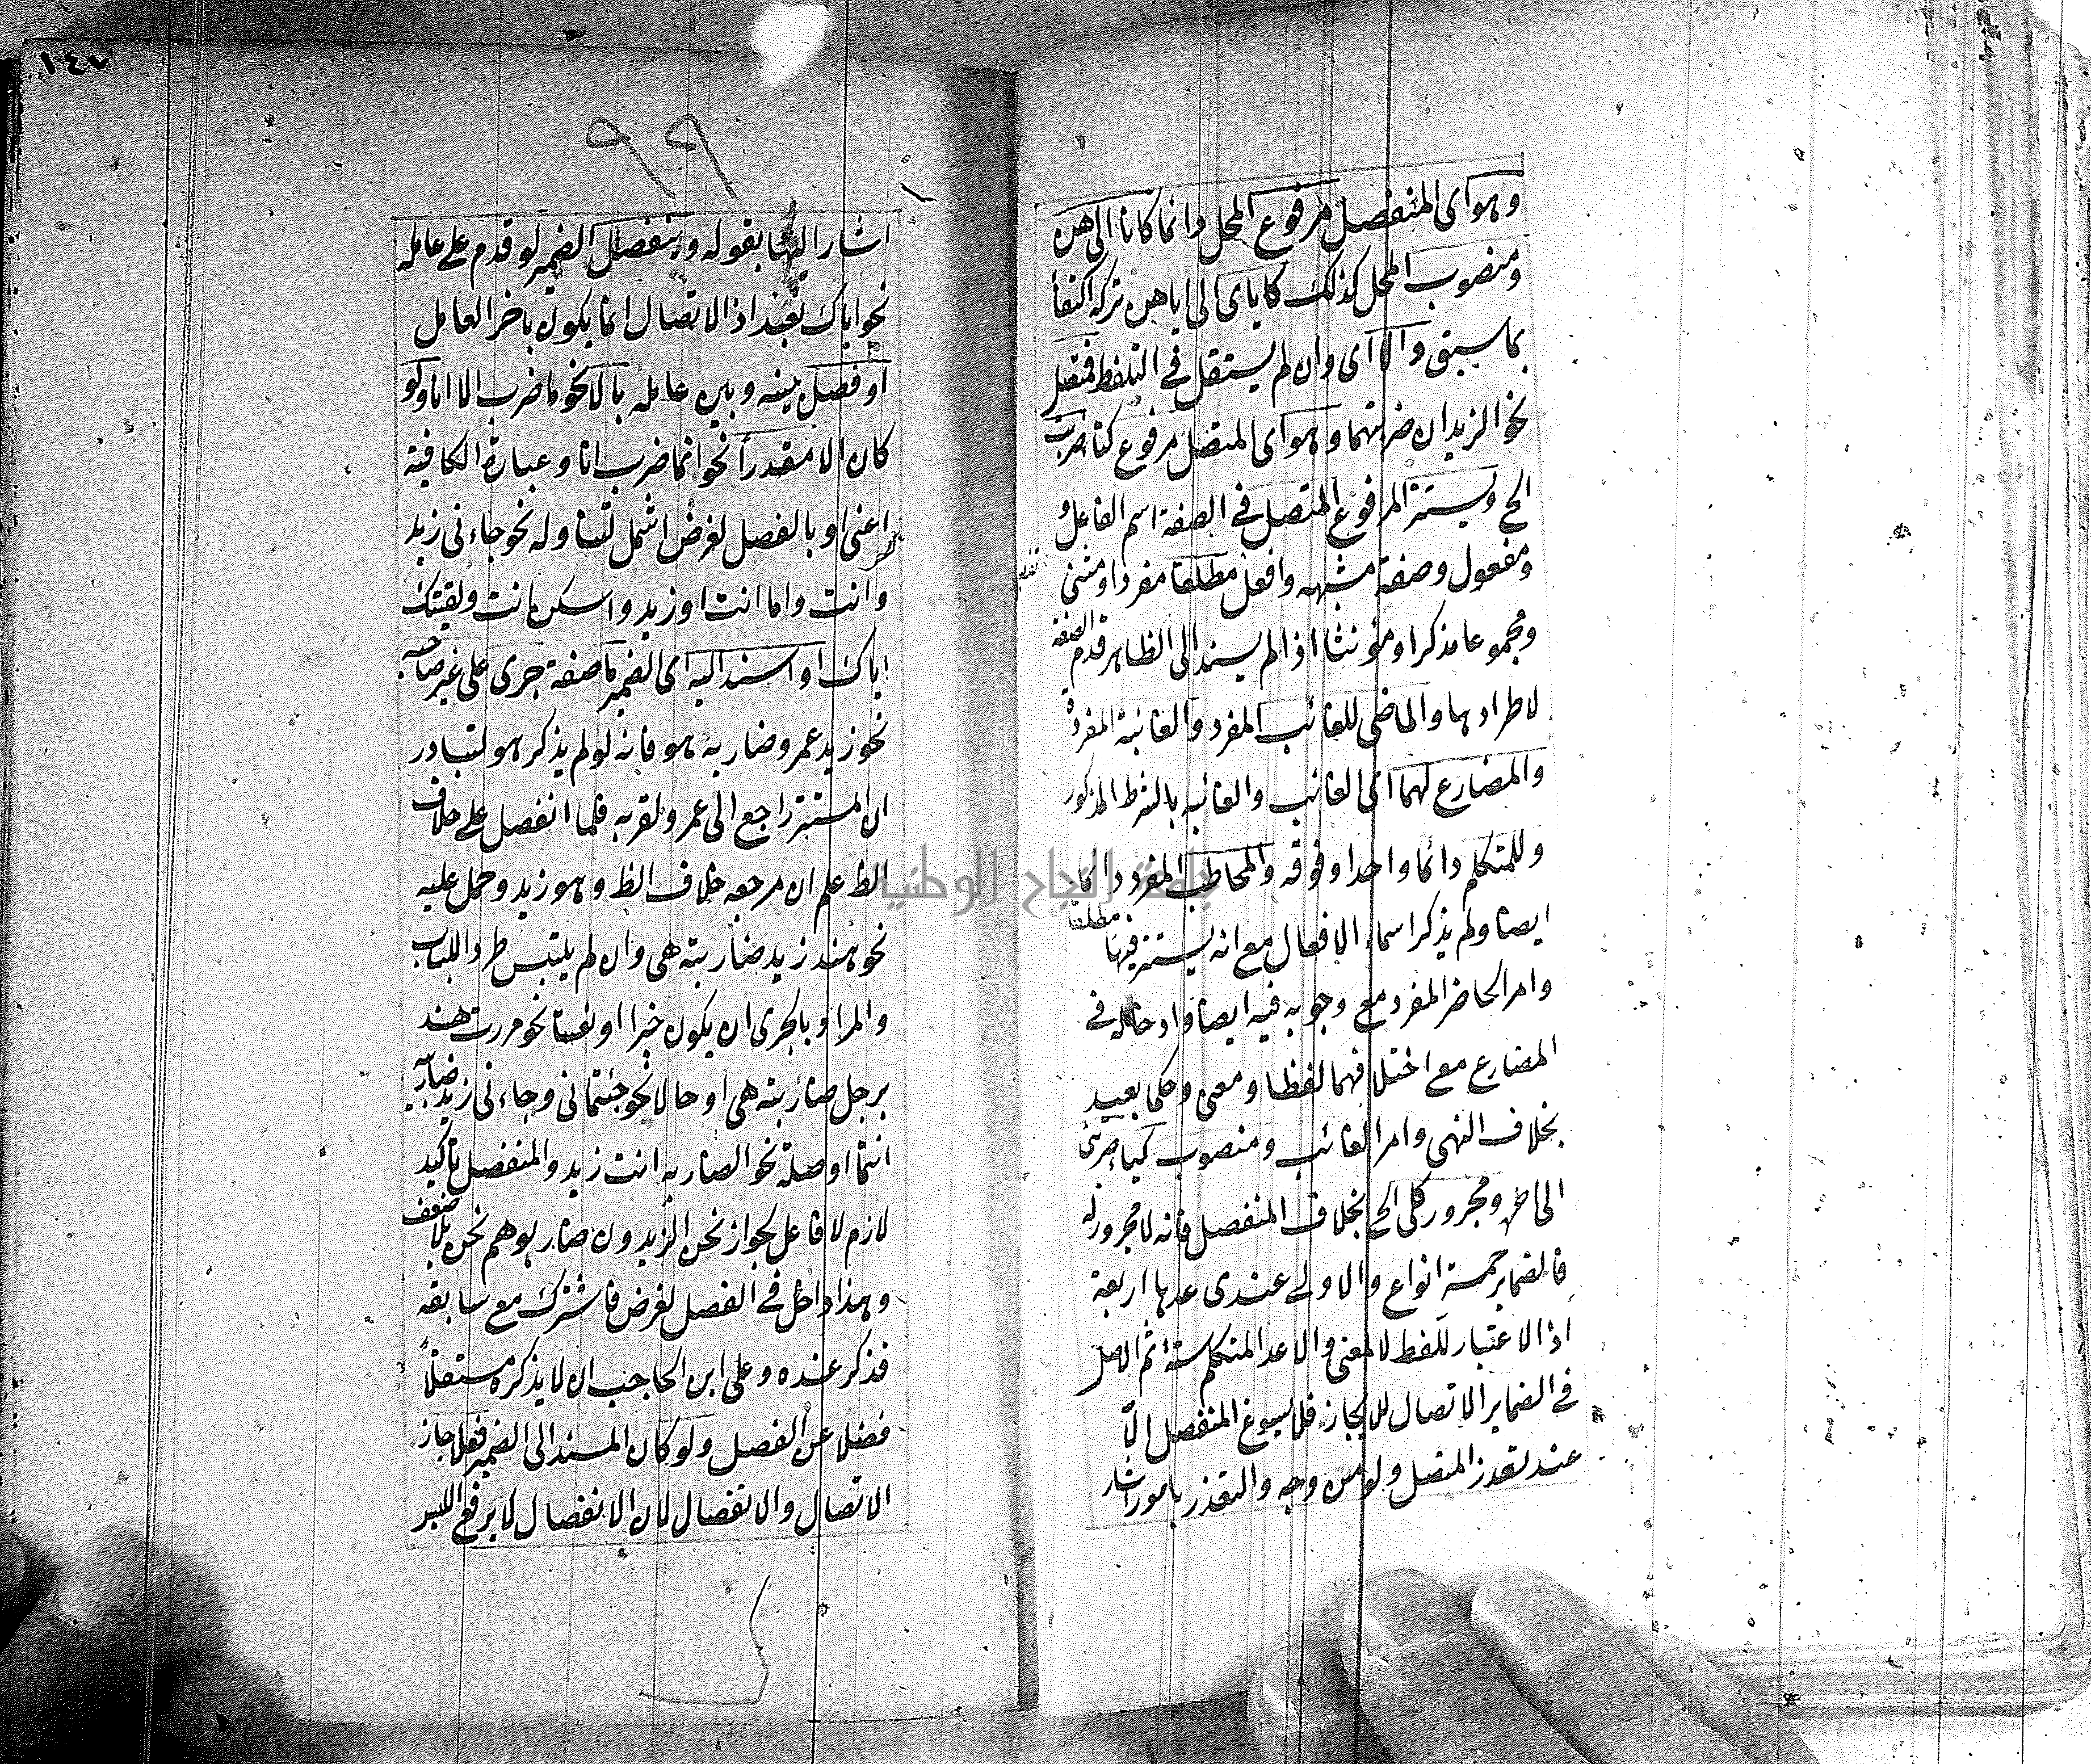 وهو اى المنفصل مرفوع المحل دائما كانا الى هن
ومنصوب المحل كذلك كاياى الى اياهن تركه اكتفأ
بما سبق والا اى وان لم يستقل فى التلفظ فمتصل
نحو الزيدان ضربتهما وهو اى المتصل مرفوع كتا ضربت
الخ ويستتر المرفوع المتصل فى الصفة اسم الفاعل و
ومفعول وصفة مشبهه وافعل مطلقا مفردا او مثنى
ومجموعا مذكرا ومؤنثا اذا لم يسند الى الظاهر قدم الصفة
لاطرادها والماضى للغائب المفرد والغائبة المفردة
والمضارع لهما اى الغائب والغائبه بالشرط المذكور
وللمتكلم دائما واحدا وفوقه والمخاطب المفرد دائما
ايضا ولم يذكر اسماء الافعال مع انه يستتر فيها مطلقا
وامر الحاضر المفرد مع وجوبه فيه ايضا وادخاله فى
المضارع مع اختلافهما لفظا ومعنى وحكما بعيد
بخلاف النهى وامر الغائب ومنصوب كياء ضربنى
الى اخر ومجرور كلى الخ بخلاف المنفصل فانه لا مجرور له
فالضماير خمسة انواع والاولى عندى عدها اربعة
اذ الاعتبار للفظ لا لمعنى والا عد المتكلم ستة ثم الاصل
فى الضماير الاتصال للايجاز فلا يسوغ المنفصل الّا
عند تعذر المتصل ولو من وجه والتعذر بامور اشار
١٤٧
٩٩
اشار اليها بقوله وينفصل الضمير لو قدم على عامله
نحو اياك نعبد اذ الاتصال انما يكون باخر العامل
او فصل بينه وبين عامله بالا نحو ما ضرب الا انا ولو
كان الا مقدرا نحو انما ضرب انا وعبارة الكافية
اعنى او بالفصل لغرض اشمل لتناوله نحو جاءنى زيد
وانت واما انت او زيد واسكن انت ولقيتك
اياك او اسند اليه اى الضمير صفة جرى على غير صاحبه
نحو زيد عمرو ضاربه هو فانه لو لم يذكر هو لتبادر
ان المستتر راجع الى عمرو لقربه فلما انفصل على خلاف
الظ علم ان مرجعه خلاف الظ وهو زيد وحمل عليه
نحو هند زيد ضاربته هى وان لم يلتبس طردا للباب
والمراد بالجرى ان يكون خبرا او نعتا نحو مررت هند
برجل ضاربته هى او حالا نحو جئتمانى وجاءنى زيد ضارباه
انتما او صلة نحو الضاربه انت زيد والمنفصل تأكيد
لازم لا فاعل لجواز نحن الزيدون ضاربوهم نحن بلا ضعف
وهذا داخل فى الفصل لغرض فاشترك مع سابقه
فذكر عنده وعلى ابن الحاجب ان لا يذكره مستقلاً
فضلا عن الفصل ولو كان المسند الى الضمير فعلا جاز
الاتصال والانفصال لان الانفصال لا يرفع اللبس